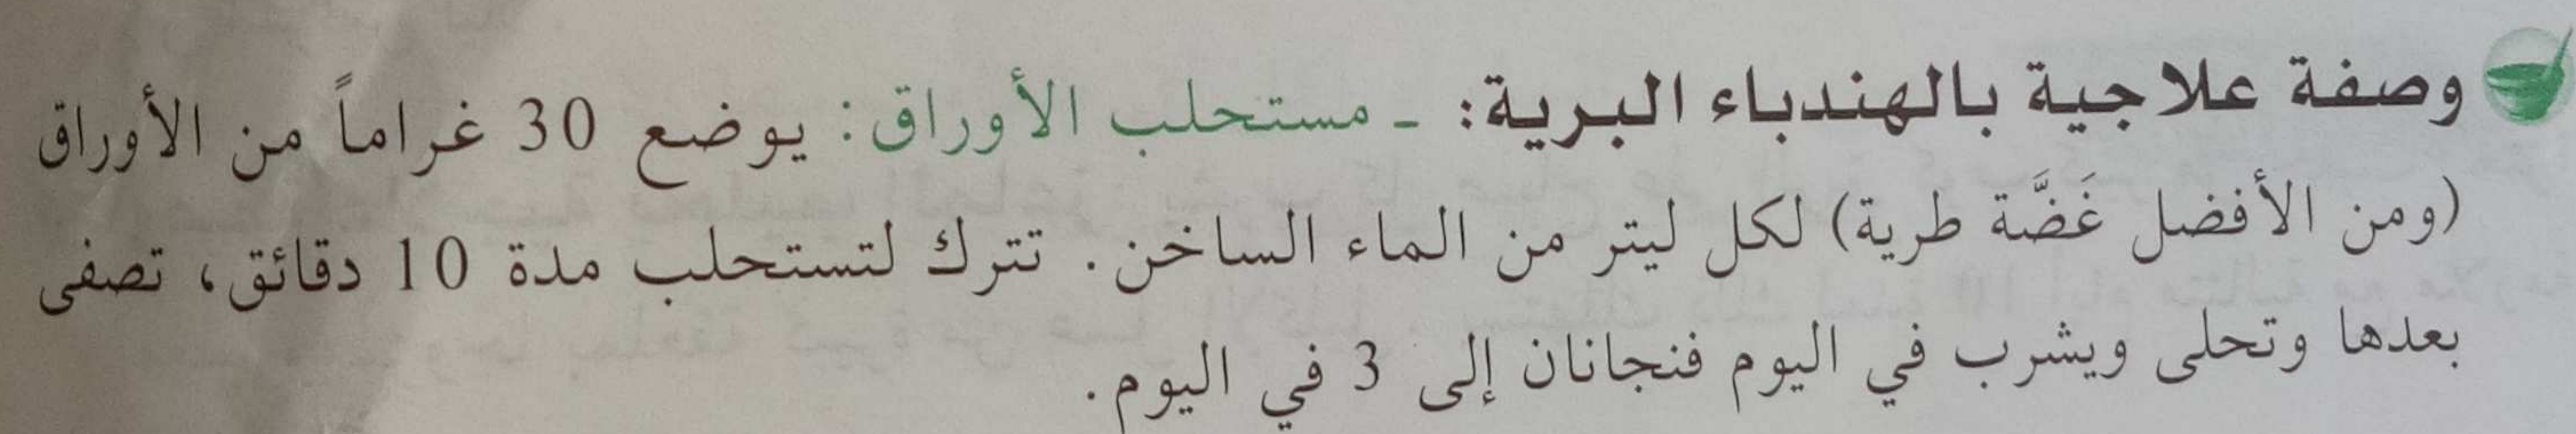 وصفة علاجية بالهندباء البرية: ـ مستحلب الأوراق: يوضع 30 غراماً من الأوراق
(ومن الأفضل غَضَّة طرية) لكل ليتر من الماء الساخن. تترك لتستحلب مدة 10 دقائق، تصفى
بعدها وتحلى ويشرب في اليوم فنجانان إلى 3 في اليوم.